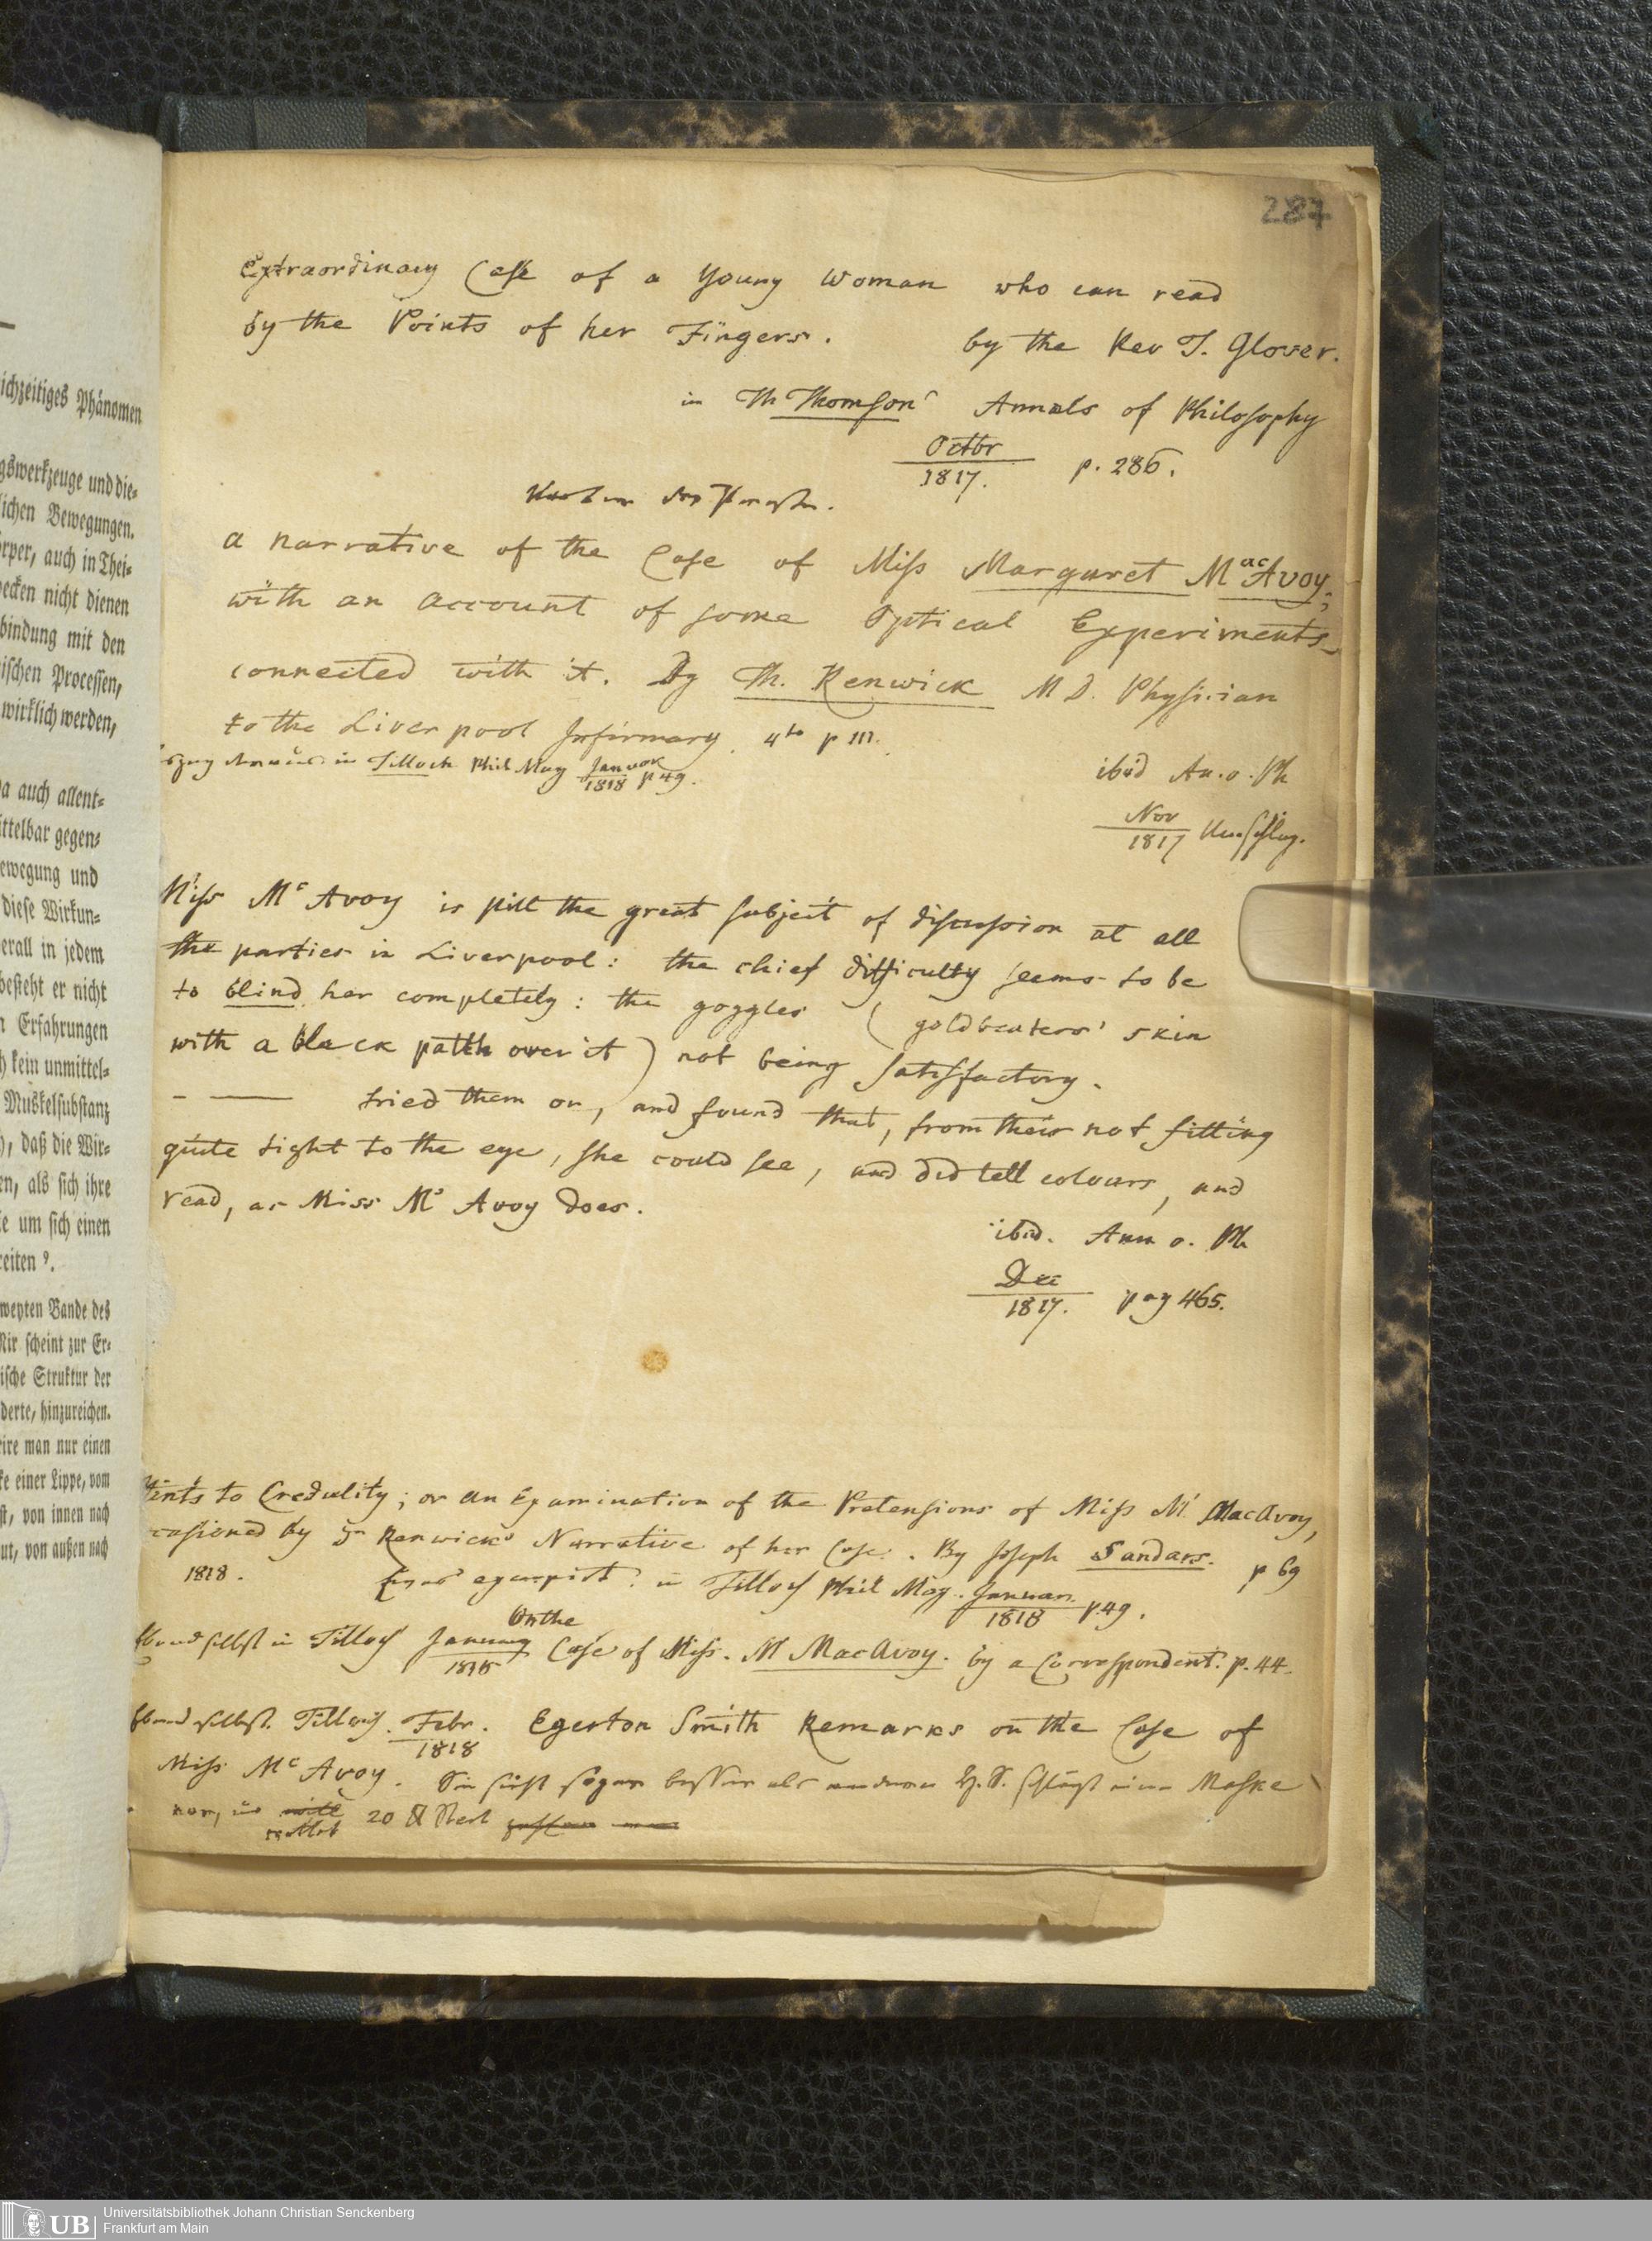 ichzeitiges Phänomen
gswerkzeuge und die-
lichen Bewegungen.
rper, auch in Thei-
ecken nicht dienen
bindung mit den
ischen Processen,
wirklich werden,
a auch allent-
ittelbar gegen-
ewegung und
diese Wirkun-
erall in jedem
besteht er nicht
n Erfahrungen
h kein unmittel-
Muskelsubstanz
), daß die Wir-
en, als sich ihre
e um sich einen
reiten ?.
weyten Bande des
Mir scheint zur Er-
ische Struktur der
derte, hinzureichen.
ire man nur einen
ke einer Lippe, vom
st, von innen nach
ut, von außen nach
287
Extraordinary Case of a Young Woman who can read
by the Points of her Fingers. by the Rev T. Glover.
in Th Thomson' Annals of Philosophy
Octbr
1817. p. 286.
a narrative of the Case of Miss Margaret MacAvoy;
with an account of some Optical Experiments
connected with it. By Th. Renwick M D. Physician
to the Liverpool Infirmary. 4to p 111.
in Tilloch Phil Mag Januar
1818 p 49.
ibid An. o. Ph
Nov
1817 Umschlag.
Miss Mc Avoy is still the great subject of discussion at all
the parties in Liverpool: the chief difficulty seems to be
to blind her completely: the goggles (goldbeaters' skin
with a black patch over it) not being satisfactory.
– —— tried them on, and found that, from their not fitting
quite tight to the eye, she could see, and did tell colours, and
read, as Miss Mc Avoy does.
ibid. Ann o. Ph
Dec
1817. pag 465.
Hints to Credulity; or an Examination of the Pretensions of Miss M. MacAvoy,
casioned by Dr Renwick's Narrative of her Case. By Joseph Sandars. p 69
1818. in Tilloch Phil Mag. Januar.
1818 p. 49.
Ebendselbst in Tilloch January
1818 On the Case of Miss. M MacAvoy. by a Correspondent. p. 44.
Ebendselbst. Tilloch. Febr.
1818 Egerton Smith Remarks on the Case of
Miss Mc Avoy. Sie sieht sogar besser als andere H. S. schlägt eine Maske
vor, 20 £ Sterl
UB
Universitätsbibliothek Johann Christian Senckenberg
Frankfurt am Main